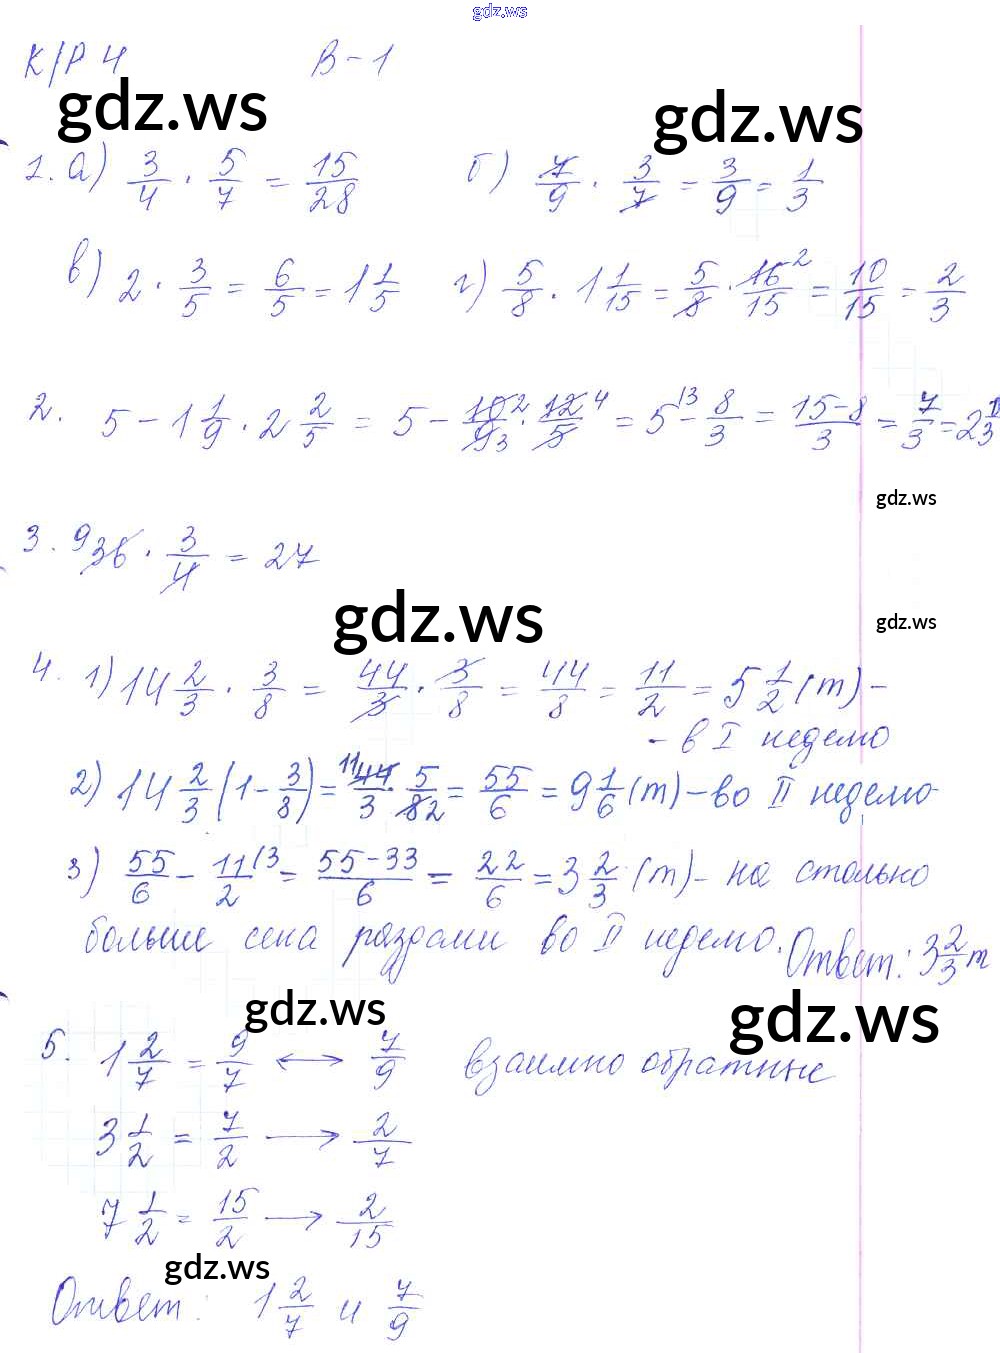 gdz.ws
К/Р 4 В-1
gdz.ws gdz.ws
1. а) 3/4 · 5/7 = 15/28 б) 7/9 · 3/7 = 3/9 = 1/3
в) 2 · 3/5 = 6/5 = 1 1/5 г) 5/8 · 1 1/15 = 5/8 · 16 2/15 = 10/15 = 2/3
2. 5 - 1 1/9 · 2 2/5 = 5 - 10 2/9 3 · 12 4/5 = 5 (3 - 8/3 = 15-8/3 = 7/3 = 2 1/3
gdz.ws
3. 9 36 · 3/4 = 27
gdz.ws gdz.ws
4. 1) 14 2/3 · 3/8 = 44/3 · 3/8 = 44/8 = 11/2 = 5 1/2 (т) -
- в I неделю
2) 14 2/3 (1 - 3/8) = 11 44/3 · 5/8 2 = 55/6 = 9 1/6 (т) - во II неделю
3) 55/6 - 11/2 (3 = 55-33/6 = 22/6 = 3 2/3 (т) - на столько
больше сена раздали во II неделю. Ответ: 3 2/3 т
gdz.ws gdz.ws
5. 1 2/7 = 9/7 ↔ 7/9 взаимно обратные
3 1/2 = 7/2 → 2/7
7 1/2 = 15/2 → 2/15
gdz.ws
Ответ: 1 2/7 и 7/9